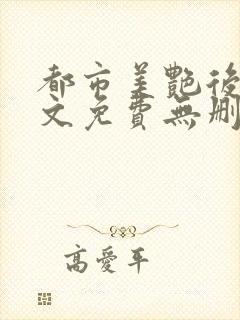 都市美艷後
文免費無刪
高愛平